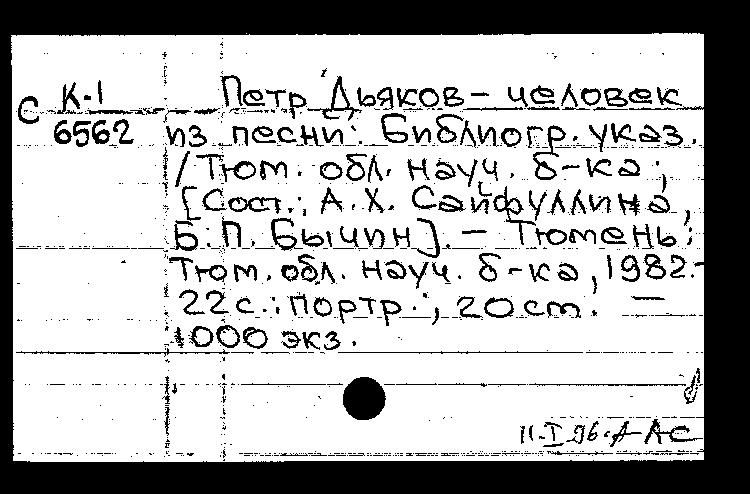 С К-1 Петр Дьяков - человек
6562 из песни: Библиогр. указ.
/ Тюм. обл. науч. б-ка;
[Сост.: А.Х. Сайфуллина,
Б.П. Бычин]. - Тюмень:
Тюм. обл. науч. б-ка, 1982.-
22 с.: портр.; 20 cm. -
1000 экз.